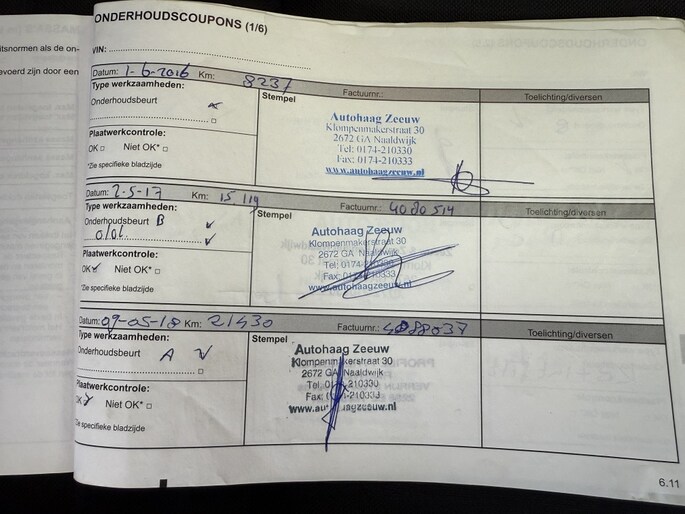 itsnormen als de on-
evoerd zijn door een
ONDERHOUDSCOUPONS (1/6)
VIN:
Datum: 1-6-2016 Km: 8237 Factuurnr.: Toelichting/diversen
Type werkzaamheden:
Onderhoudsbeurt
Plaatwerkcontrole:
OK □ Niet OK* □
*Zie specifieke bladzijde
Stempel
Autohaag Zeeuw
Klompenmakerstraat 30
2672 GA Naaldwijk
Tel: 0174-210330
Fax: 0174-210333
www.autohaagzeeuw.nl
Datum: 2-5-17 Km: 15 119 Factuurnr.: 4080514 Toelichting/diversen
Type werkzaamheden:
Onderhoudsbeurt B ✓
✓
Plaatwerkcontrole:
OK ✓ Niet OK* □
*Zie specifieke bladzijde
Stempel
Autohaag Zeeuw
Klompenmakerstraat 30
2672 GA Naaldwijk
Tel: 0174-210330
Fax: 0174-210333
www.autohaagzeeuw.nl
Datum: 09-05-18 Km: 21430 Factuurnr.: 4088037 Toelichting/diversen
Type werkzaamheden:
Onderhoudsbeurt A ✓
Plaatwerkcontrole:
OK ✓ Niet OK* □
*Zie specifieke bladzijde
Stempel
Autohaag Zeeuw
Klompenmakerstraat 30
2672 GA Naaldwijk
Tel: 0174-210330
Fax: 0174-210333
www.autohaagzeeuw.nl
6.11